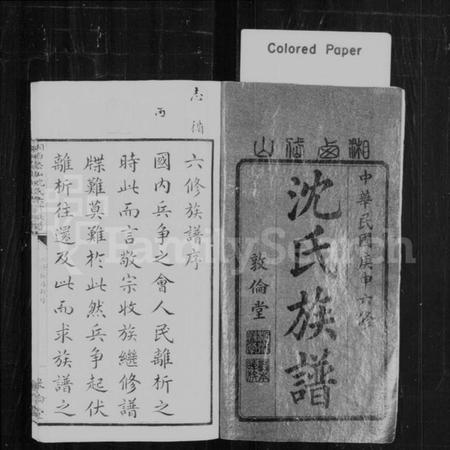 Colored Paper
湘鹵
山
中華民國庚申六修
沈氏族譜
敦倫堂
志
丙
六修族譜序
國內兵爭之會人民離析之
時此而言敬宗收族繼修譜
牒難莫難於此然兵爭起伏
離析往還及此而求族譜之
FamilySearch